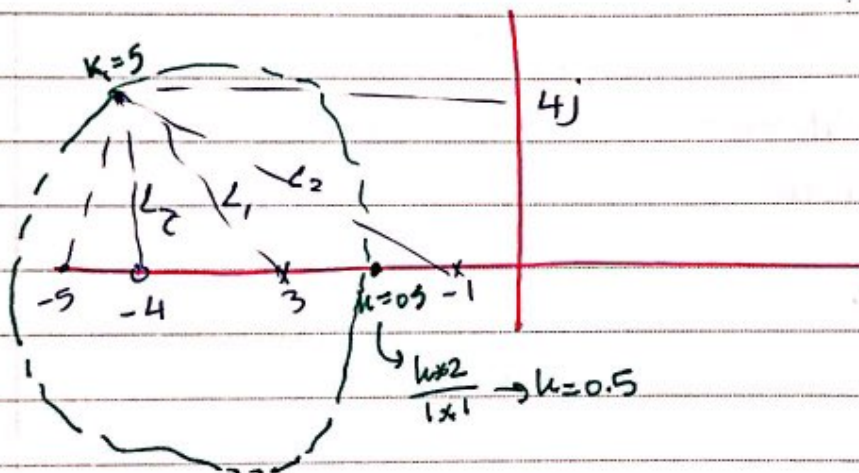 K₁=5
4j
L₂
L₁
L₂
-5
-4
3
k=05
-1
k×2
1×1 → k=0.5